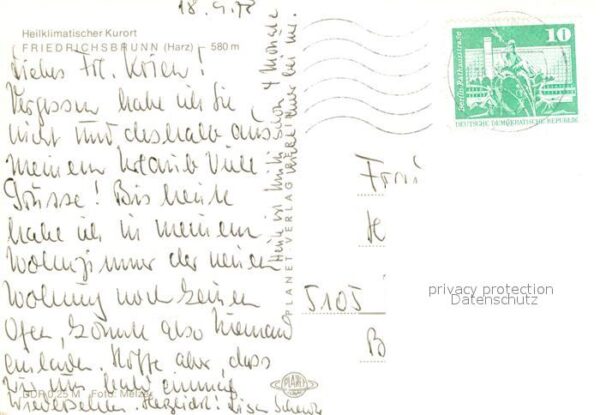 18.9.78
Heilklimatischer Kurort
FRIEDRICHSBRUNN (Harz) – 580 m
Liebes Frl.
Vergessen habe ich Sie
nicht und deshalb aus
meinem Urlaub viele
Grüsse! Bis heute
habe ich in meinem
Wohnzimmer der neuen
Wohnung noch keinen
Ofen, konnte also niemand
einladen. Hoffe aber, dass
wir uns bald einmal
wiedersehen. Herzlichst!
DDR 0,25 M Foto: Melzer
PLANET-VERLAG BERLIN
PLANET
10
Berlin, Rathausstraße
DEUTSCHE DEMOKRATISCHE REPUBLIK
Frau
5105
B
privacy protection
Datenschutz